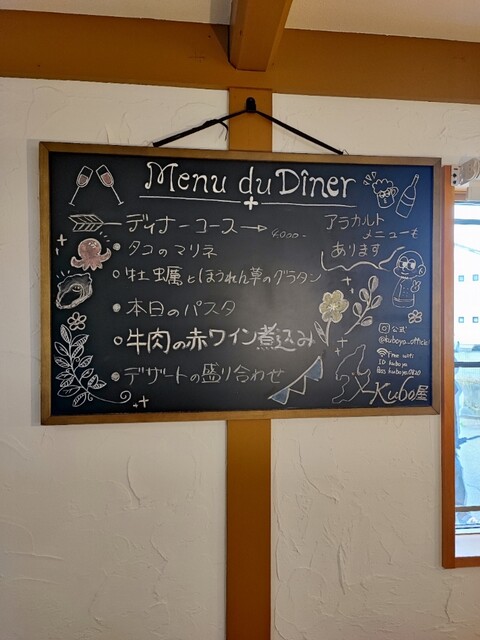 Menu du Dîner
ディナーコース 4000-
・タコのマリネ
・牡蠣とほうれん草のグラタン
・本日のパスタ
・牛肉の赤ワイン煮込み
・デザートの盛り合わせ
アラカルト
メニューも
あります
公式
@kuboya_official
Free wifi
ID kuboya
Pass kuboya0820
Kubo屋